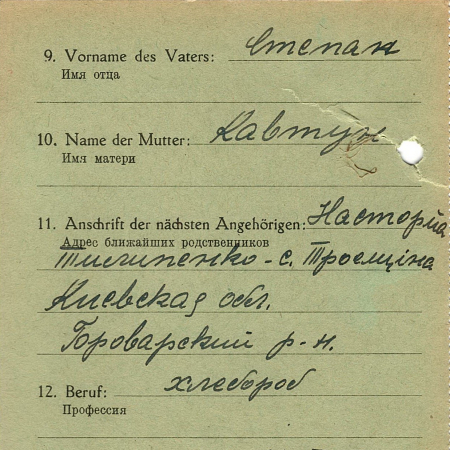 9. Vorname des Vaters: Степан
Имя отца
10. Name der Mutter: Кавтун
Имя матери
11. Anschrift der nächsten Angehörigen: Настория
Адрес ближайших родственников
Тилипенко - с. Троещіна
Киевская обл.
Бороварский р-н.
12. Beruf: хлебороб
Профессия